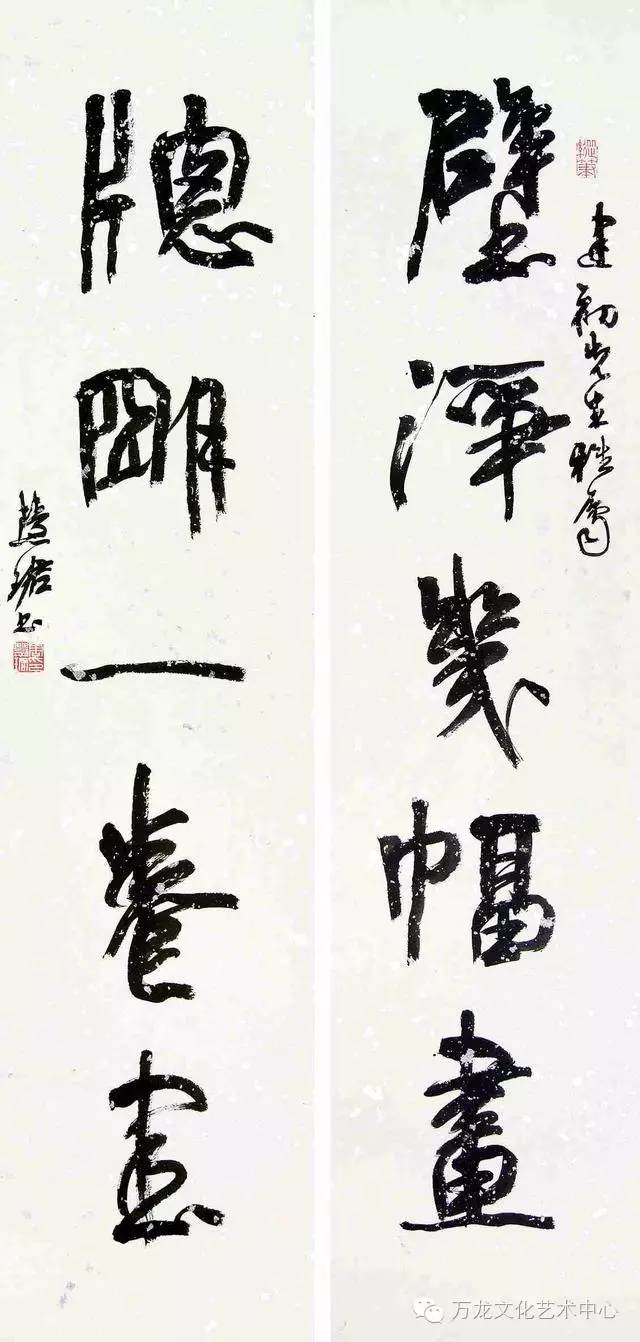 建初先生雅屬
壁渾幾幅畫
牕朙一卷書
慧珺書
万龙文化艺术中心